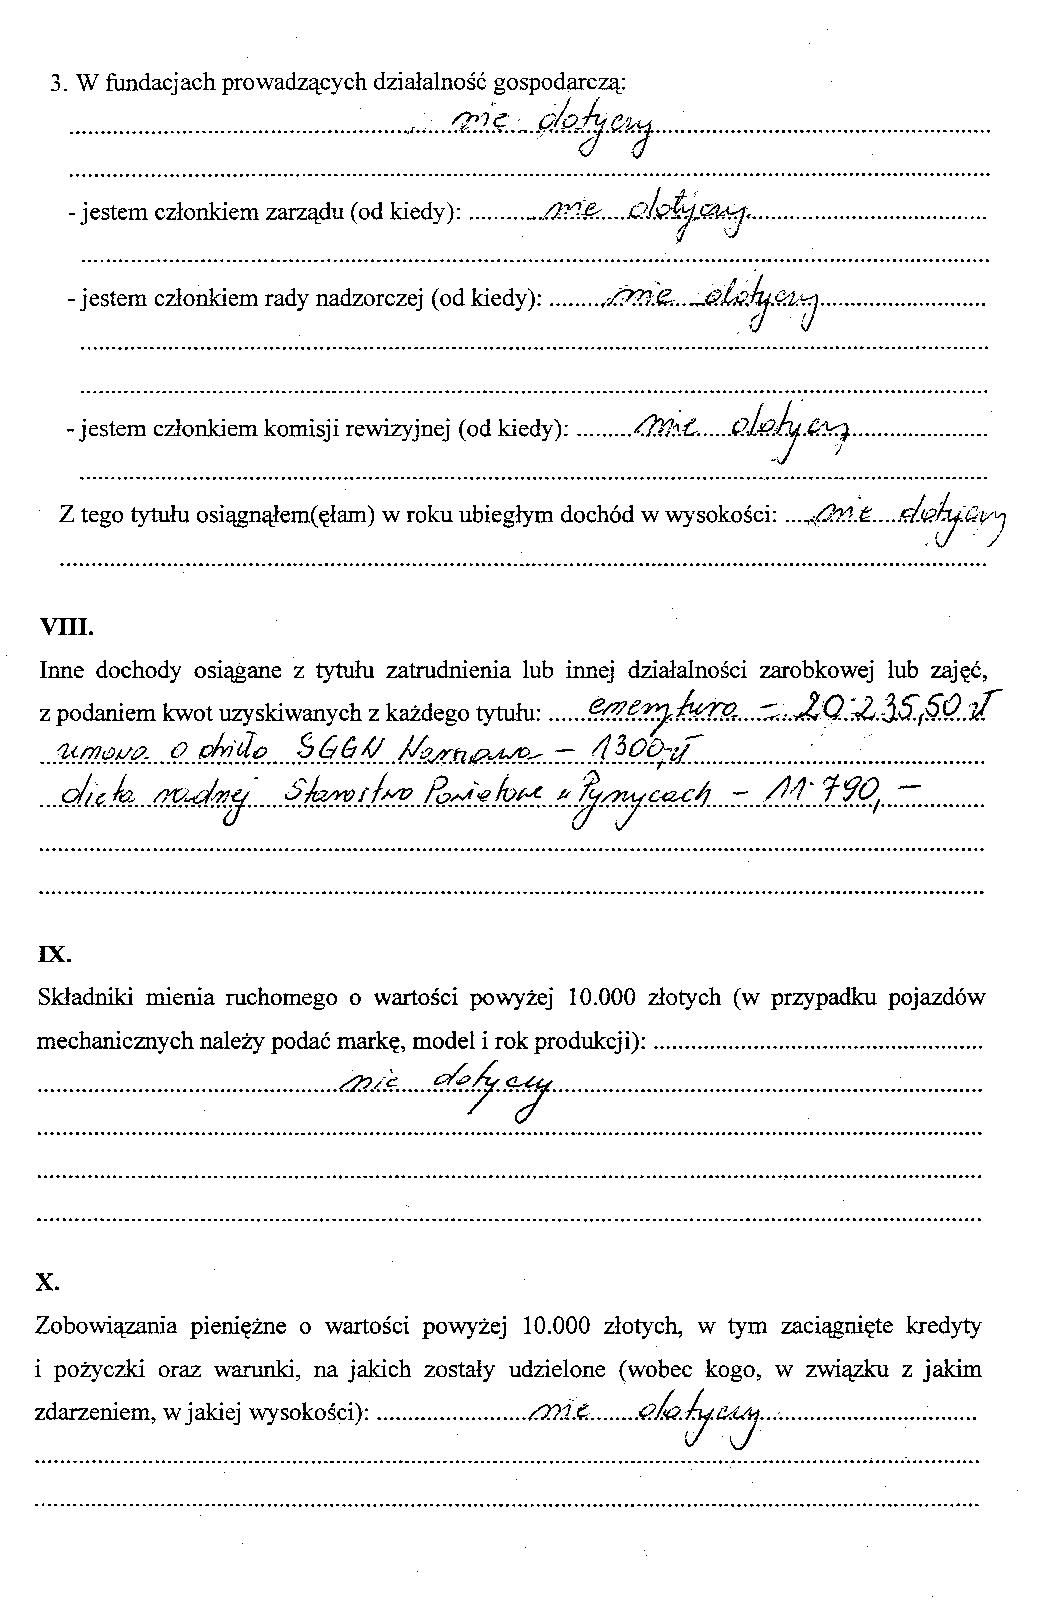 3. W fundacjach prowadzących działalność gospodarczą:
nie dotyczy
- jestem członkiem zarządu (od kiedy): nie dotyczy
- jestem członkiem rady nadzorczej (od kiedy): nie dotyczy
- jestem członkiem komisji rewizyjnej (od kiedy): nie dotyczy
Z tego tytułu osiągnąłem(ęłam) w roku ubiegłym dochód w wysokości: nie dotyczy
VIII.
Inne dochody osiągane z tytułu zatrudnienia lub innej działalności zarobkowej lub zajęć,
z podaniem kwot uzyskiwanych z każdego tytułu: emerytura - 20.235,50 zł
umowa o dzieło SGGW - 1300,zł
dieta radnej Starostwo Powiatowe w Pyrzycach - 11.790, -
IX.
Składniki mienia ruchomego o wartości powyżej 10.000 złotych (w przypadku pojazdów
mechanicznych należy podać markę, model i rok produkcji):
nie dotyczy
X.
Zobowiązania pieniężne o wartości powyżej 10.000 złotych, w tym zaciągnięte kredyty
i pożyczki oraz warunki, na jakich zostały udzielone (wobec kogo, w związku z jakim
zdarzeniem, w jakiej wysokości): nie dotyczy